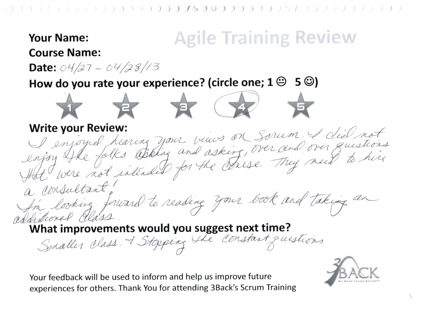 Agile Training Review
Your Name:
Course Name:
Date: 04/27 - 04/28/13
How do you rate your experience? (circle one; 1 ☹ 5 ☺)
1 2 3 4 5
Write your Review:
I enjoyed hearing your views on Scrum & did not
enjoy the folks asking and asking, over and over questions
that were not intended for the course. They need to hire
a consultant!
I'm looking forward to reading your book and taking an
additional class.
What improvements would you suggest next time?
Smaller class. & Stopping the constant questions
3BACK
Your feedback will be used to inform and help us improve future
experiences for others. Thank You for attending 3Back's Scrum Training